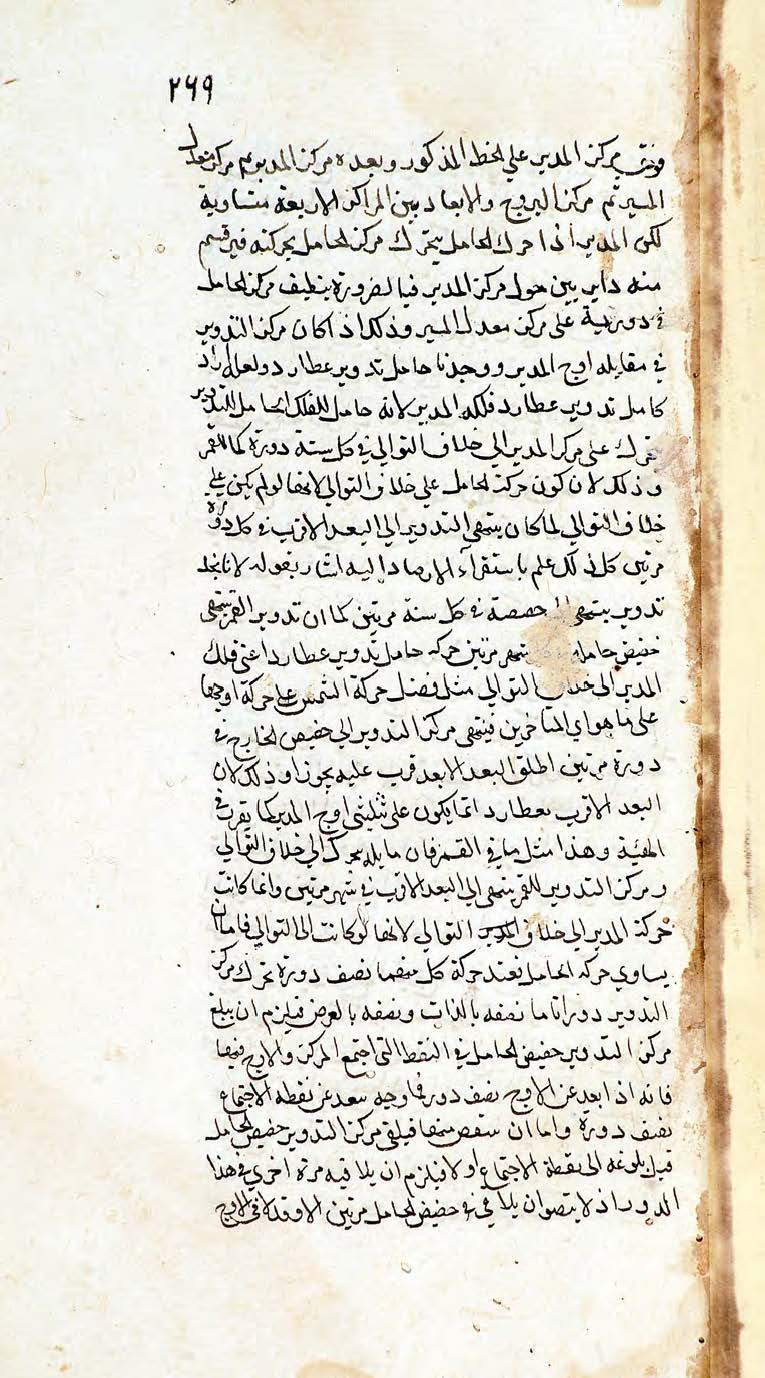 ٢٦٩
مركز المدير على الخط المذكور وبعده مركز المدير ثم مركز معدل
المسير ثم مركز البروج والابعاد بين المراكز الاربعة متساوية
لكن المدير اذا حرك الحامل يتحرك مركز الحامل بحركته فيرتسم
منه دايرة حول مركز المدير فبالضرورة ينطبق مركز الحامل
في دورته على مركز معدل المسير وذلك اذا كان مركز التدوير
في مقابله اوج المدير ووجدنا حامل تدوير عطارد ولعله اراد
كامل تدوير عطارد فلكه المدير لانه حامل للفلك الحامل للتدوير
تحرك على مركز المدير الى خلاف التوالي في كل سنة دورة كما للقمر
وذلك لان كون حركة الحامل على خلاف التوالي لانها لو لم يكن على
خلاف التوالي لما كان ينتهي التدوير الى البعد الاقرب في كل دورة
مرتين كل ذلك علم باستقراء الارصاد اليه اشار بقوله لانا نجد
تدوير ينتهي حضيضه في كل سنة مرتين كما ان تدوير القمر ينتهي
حضيض حامله شهر مرتين حركه حامل تدوير عطارد اعني فلك
المدير الى خلاف التوالي مثل فضل حركة الشمس على حركة اوجها
على ما هو راي المتاخرين فينتهي مركز التدوير الى حضيض الخارج في
دورة مرتين اطلق البعد الابعد قرب عليه تجوزا وذلك لان
البعد الاقرب بعطارد انما يكون على تثليثي اوج المدير كما يقرب في
الهيئة وهذا مثل ما في القمر فان مايله يحرك الى خلاف التوالي
ومركز التدوير للقمر ينتهي الى البعد الاقرب في شهر مرتين وانما كانت
حركة المدير الى خلاف التوالي لانها لو كانت الى التوالي فاما ان
يساوي حركه الحامل فعند حركة كل منهما نصف دورة تحرك مركز
التدوير دورا تاما نصفه بالذات ونصفه بالعرض فيلزم ان يبلغ
مركز التدوير حضيض الحامل في النقطة التي اجتمع المركز والاوج فيها
فانه اذا بعد عن الاوج نصف دور فاوجه بعد عن نقطه الاجتماع
نصف دورة واما ان ينقص منها فيلقى مركز التدوير حضيض الحامل
قبل بلوغه الى نقطة الاجتماع او لا فيلزم ان يلاقيه مرة اخرى في هذا
الدور اذ لا يتصور ان يلاقي حضيض الحامل مرتين الا وقد لاقى الاوج